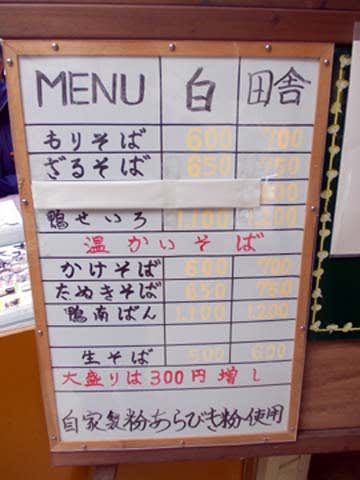 MENU 白 田舎
もりそば 600 700
ざるそば 650 750
鴨せいろ 1.100 1.200
温かいそば
かけそば 600 700
たぬきそば 650 750
鴨南ばん 1.100 1.200
生そば 500 600
大盛りは300円増し
自家製粉あらびき粉使用